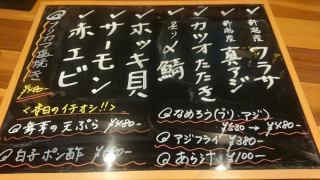 ✓新潟産 ワラサ
✓新潟産 真アジ
✓カツオたたき
✓炙り〆鯖
✓ホッキ貝
✓サーモン
✓赤エビ
塩焼き
¥480-
<本日のイチオシ!!>
の天ぷら ¥480-
白子ポン酢 ¥480-
なめろう(ブリ、アジ)
¥580→¥480-
アジフライ ¥380-
あら汁 ¥100-